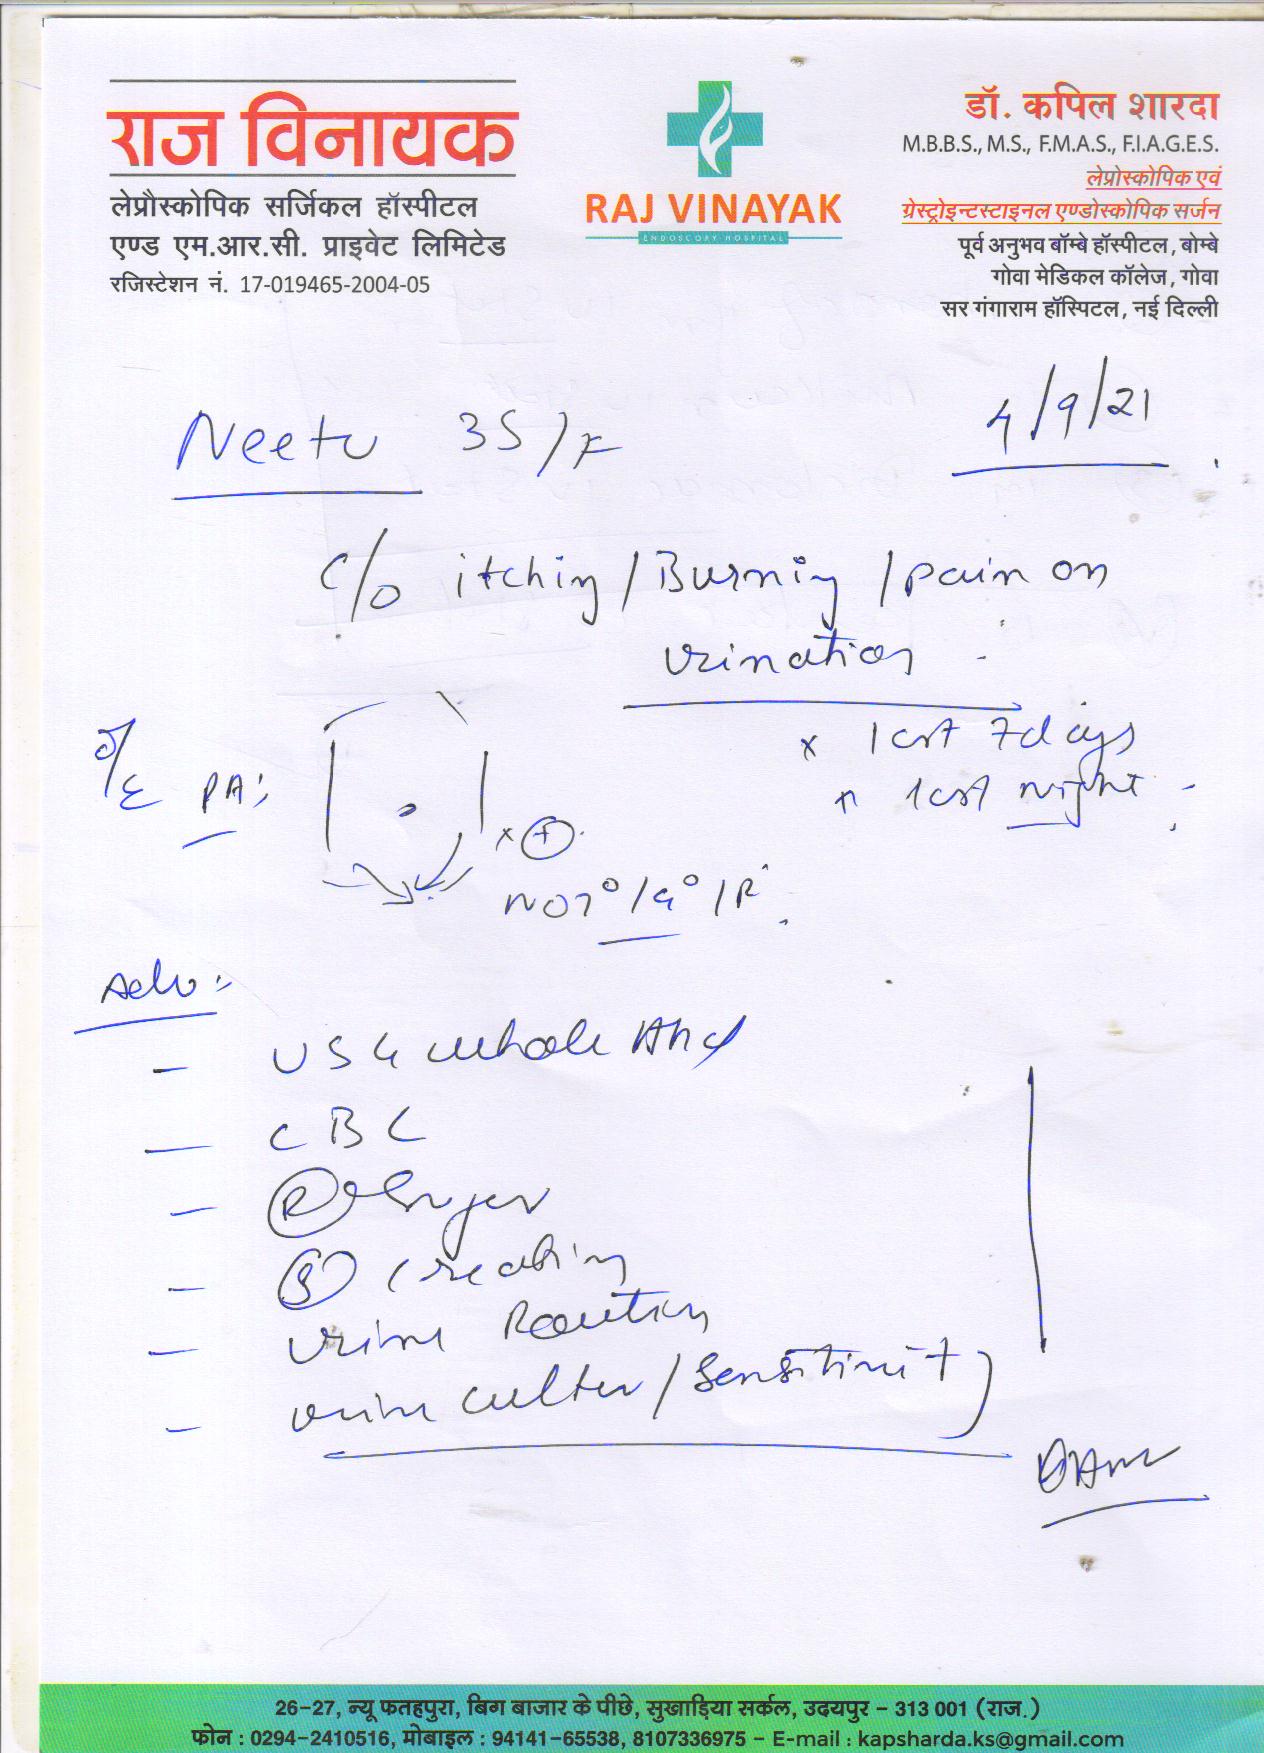 राज विनायक
लेप्रौस्कोपिक सर्जिकल हॉस्पीटल
एण्ड एम.आर.सी. प्राइवेट लिमिटेड
रजिस्टेशन नं. 17-019465-2004-05
RAJ VINAYAK
ENDOSCOPY-HOSPITAL
डॉ. कपिल शारदा
M.B.B.S., M.S., F.M.A.S., F.I.A.G.E.S.
लेप्रोस्कोपिक एवं
ग्रेस्ट्रोइन्टस्टाइनल एण्डोस्कोपिक सर्जन
पूर्व अनुभव बॉम्बे हॉस्पीटल, बोम्बे
गोवा मेडिकल कॉलेज, गोवा
सर गंगाराम हॉस्पिटल, नई दिल्ली
4/9/21
Neetu 35/F
C/O itching/Burning/pain on
urination
x last 7 days
x last night
O/E PA:
x (+)
NO T°/G°/R°
Adv:-
- USG whole Abd
- CBC
- (R) Sugar
- (S) Creatinine
- Urine Routine
- Urine Culture/Sensitivity
26-27, न्यू फतहपुरा, बिग बाजार के पीछे, सुखाड़िया सर्कल, उदयपुर - 313 001 (राज.)
फोन : 0294-2410516, मोबाइल : 94141-65538, 8107336975 - E-mail : kapsharda.ks@gmail.com